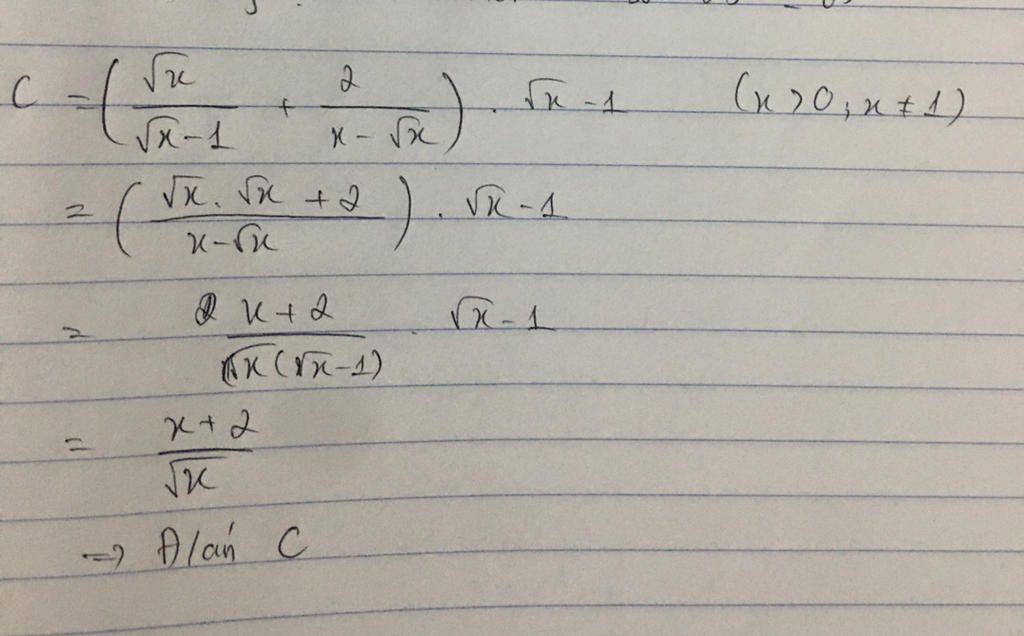 C = (√x / (√x - 1) + 2 / (x - √x)) . √x - 1 (x > 0; x ≠ 1)
= ((√x . √x + 2) / (x - √x)) . √x - 1
= (x + 2) / (√x(√x - 1)) . √x - 1
= (x + 2) / √x
=> Đ/án C